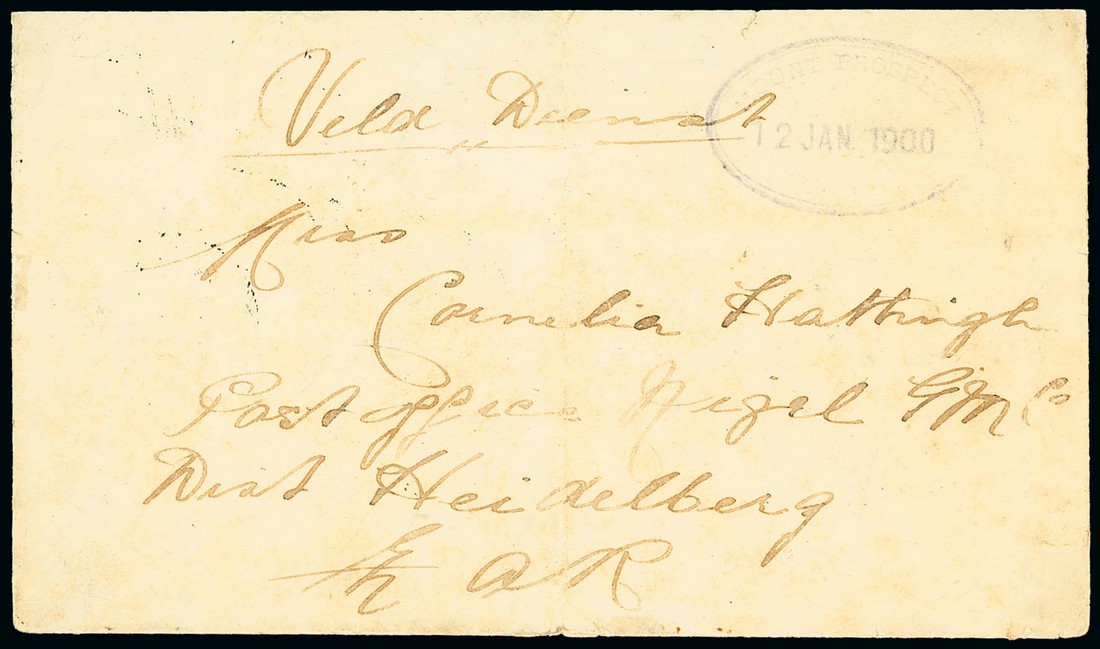 Veld Dienst
MOUNT PROSPECT
12 JAN. 1900
Miss
Cornelia Hattingh
Post office Nigel G M Co
Dist Heidelberg
Z A R